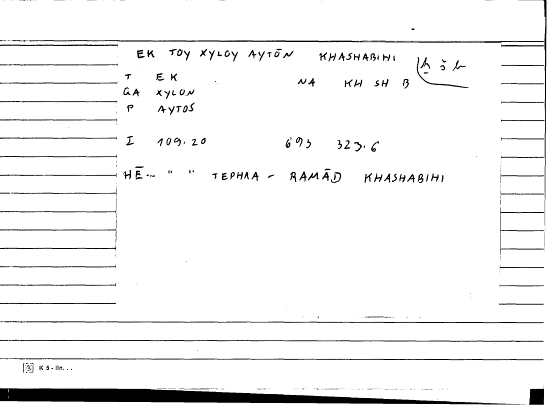 EK TOY XYLOY AYTŌN KHASHABIHI ḫ š b
T EK NA KH SH B
GA XYLON
P AYTOS
I 109.20 693 323.6
HĒ... " " TEPHRA - RAMĀD KHASHABIHI